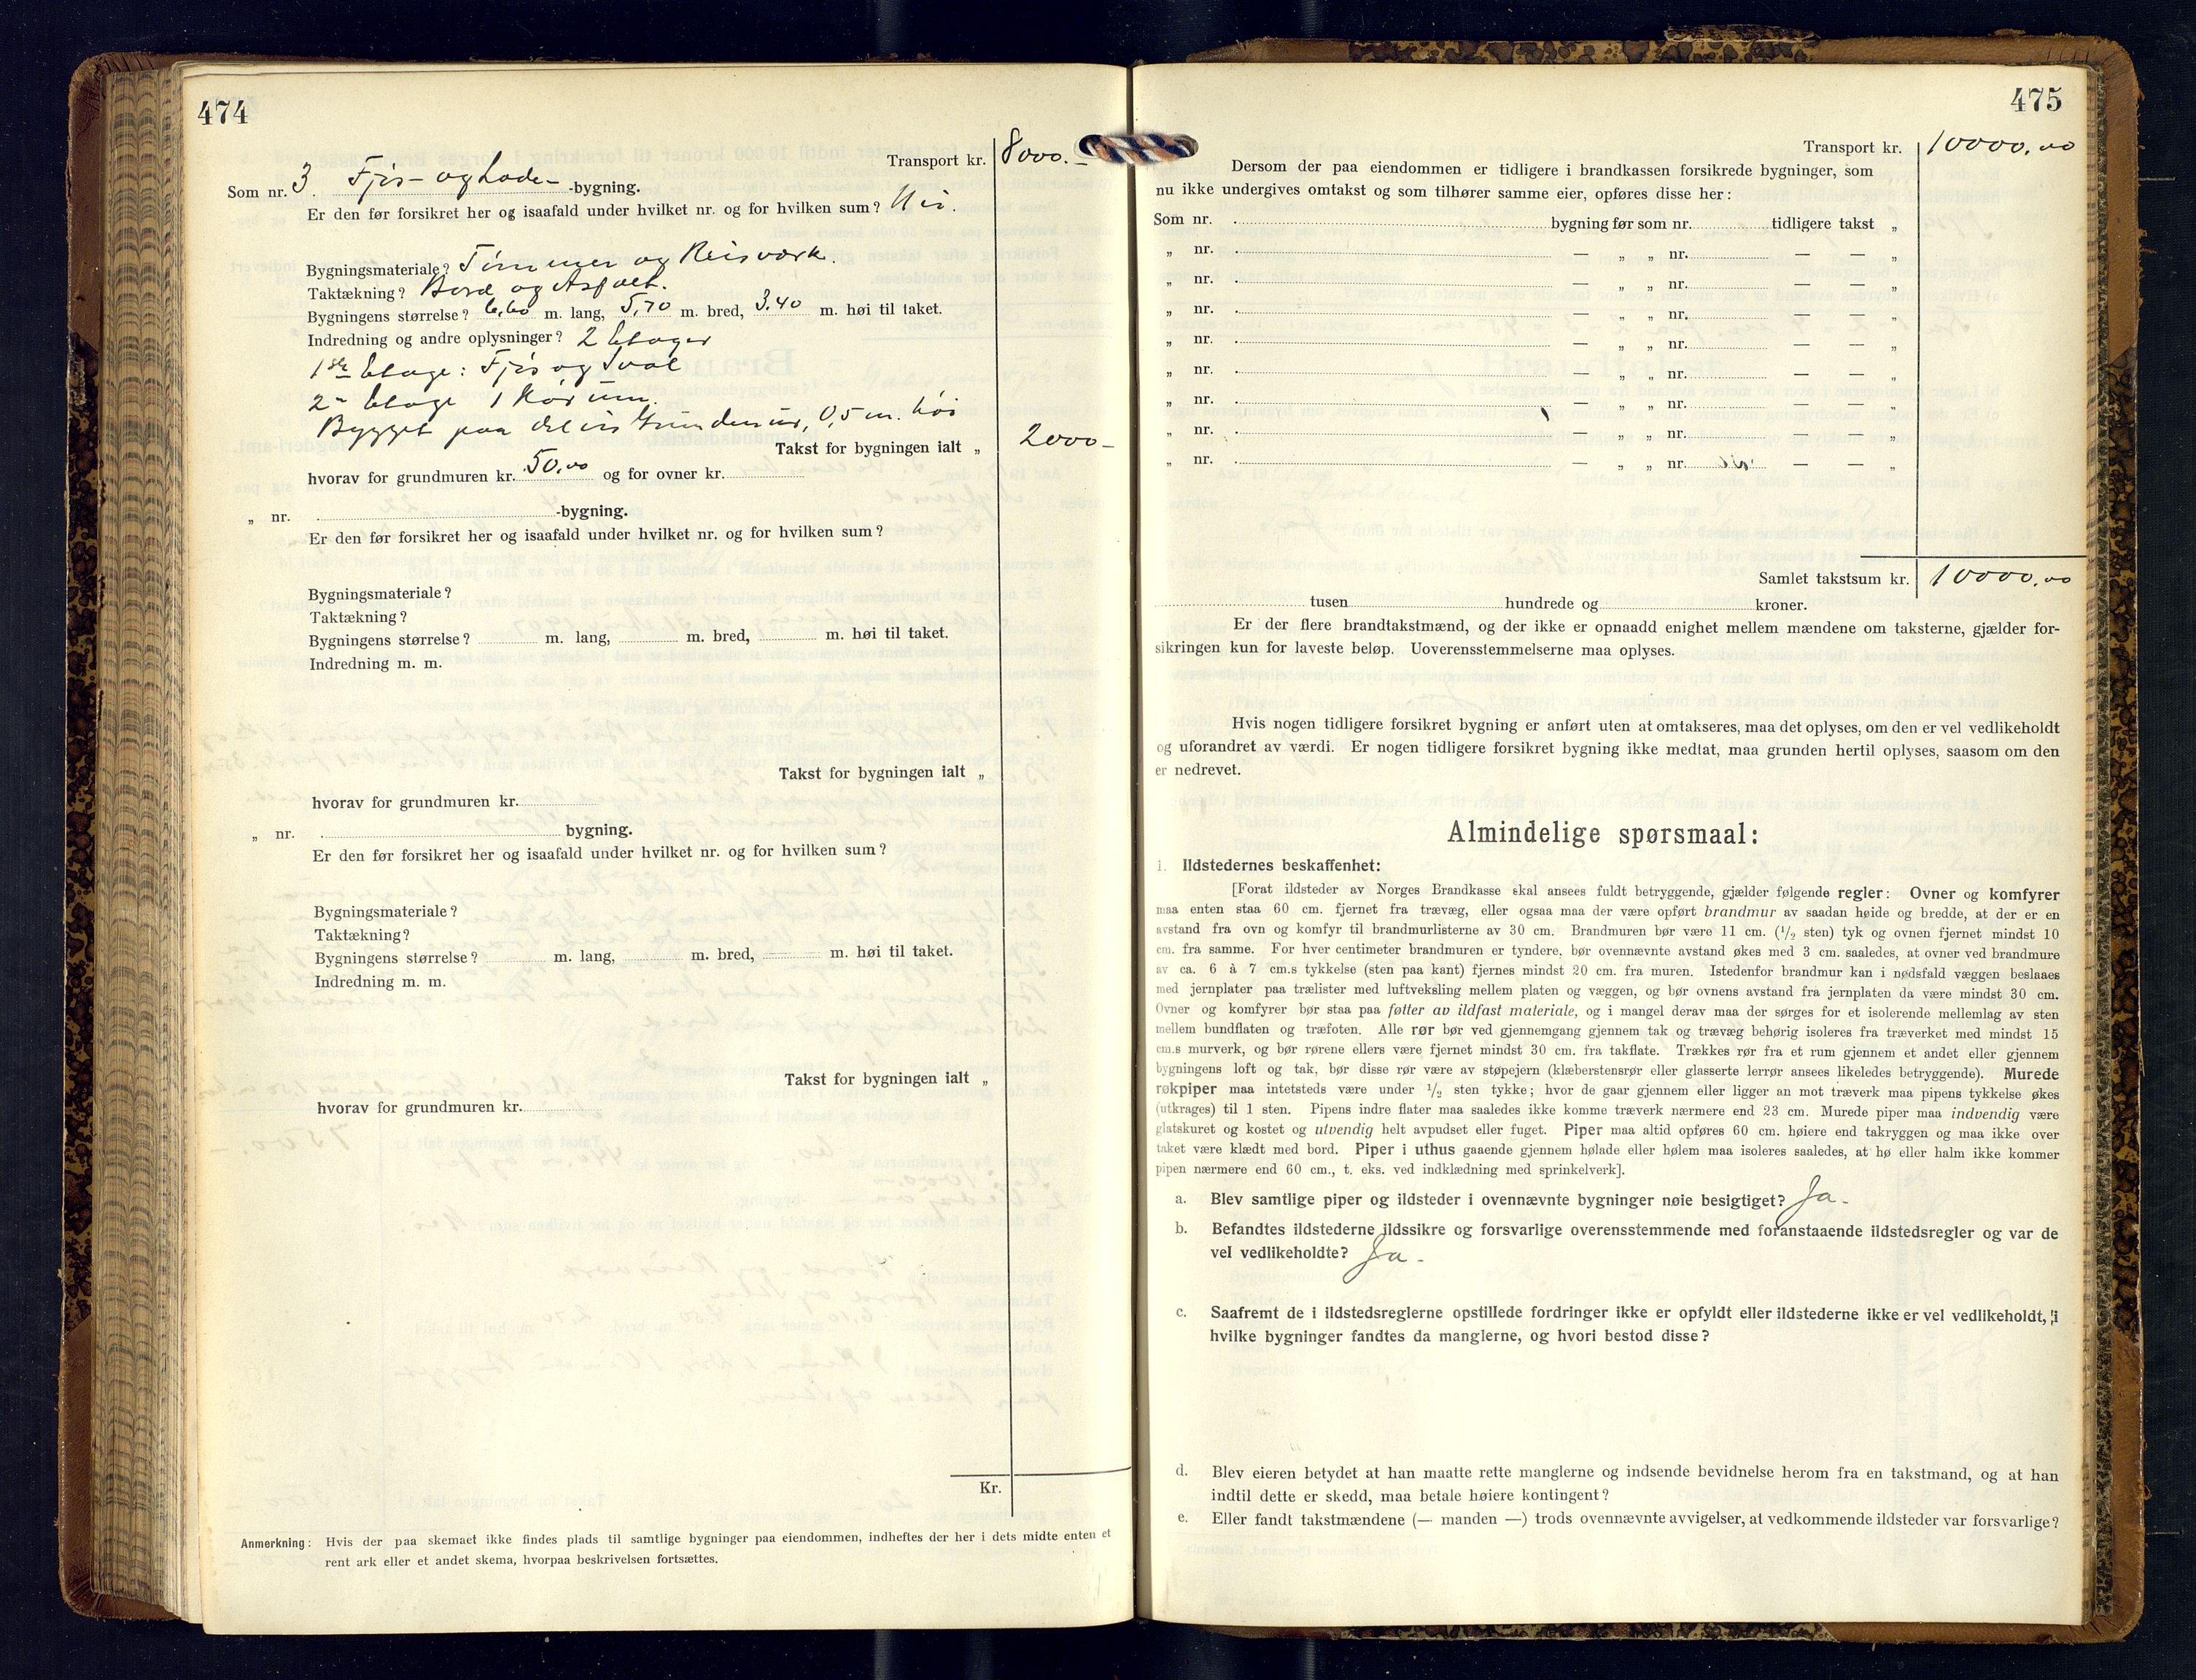 474
Transport kr. 8000.-
Som nr. 3. Fjøs- og Lade- -bygning.
Er den før forsikret her og isaafald under hvilket nr. og for hvilken sum? Nei.
Bygningsmateriale? Tømmer og Reisværk.
Taktækning? Bord og Asfalt.
Bygningens størrelse? 6,60 m. lang, 5,70 m. bred, 3.40 m. høi til taket.
Indredning og andre oplysninger? 2 Etager
1ste Etage: Fjøs og Sval
2- Etage 1 Hørum.
Bygget paa delvis Grundmur, 0,5 m. høi
Takst for bygningen ialt „ 2000-
hvorav for grundmuren kr. 50,00 og for ovner kr.
„ nr. . -bygning.
Er den før forsikret her og isaafald under hvilket nr. og for hvilken sum?
Bygningsmateriale?
Taktækning?
Bygningens størrelse? m. lang, m. bred, m. høi til taket.
Indredning m. m.
Takst for bygningen ialt „
hvorav for grundmuren kr.
„ nr. . bygning.
Er den før forsikret her og isaafald under hvilket nr. og for hvilken sum?
Bygningsmateriale?
Taktækning?
Bygningens størrelse? m. lang, m. bred, m. høi til taket.
Indredning m. m.
Takst for bygningen ialt „
hvorav for grundmuren kr.
Kr.
Anmerkning: Hvis der paa skemaet ikke findes plads til samtlige bygninger paa eiendommen, indheftes der her i dets midte enten et
rent ark eller et andet skema, hvorpaa beskrivelsen fortsættes.
475
Transport kr. 10000.00
Dersom der paa eiendommen er tidligere i brandkassen forsikrede bygninger, som
nu ikke undergives omtakst og som tilhører samme eier, opføres disse her:
Som nr. . bygning før som nr. tidligere takst „
„ nr. . — „ „ nr. — — „
„ nr. . — „ „ nr. — — „
„ nr. . — „ „ nr. — — „
„ nr. . — „ „ nr. — — „
„ nr. . — „ „ nr. — — „
„ nr. . — „ „ nr. — — „
„ nr. . — „ „ nr. — — „
„ nr. . — „ „ nr. — — „
Samlet takstsum kr. 10000.00
tusen hundrede og kroner.
Er der flere brandtakstmænd, og der ikke er opnaadd enighet mellem mændene om taksterne, gjælder for-
sikringen kun for laveste beløp. Uoverensstemmelserne maa oplyses.
Hvis nogen tidligere forsikret bygning er anført uten at omtakseres, maa det oplyses, om den er vel vedlikeholdt
og uforandret av værdi. Er nogen tidligere forsikret bygning ikke medtat, maa grunden hertil oplyses, saasom om den
er nedrevet.
Almindelige spørsmaal:
1. Ildstedernes beskaffenhet:
[Forat ildsteder av Norges Brandkasse skal ansees fuldt betryggende, gjælder følgende regler: Ovner og komfyrer
maa enten staa 60 cm. fjernet fra trævæg, eller ogsaa maa der være opført brandmur av saadan høide og bredde, at der er en
avstand fra ovn og komfyr til brandmurlisterne av 30 cm. Brandmuren bør være 11 cm. (1/2 sten) tyk og ovnen fjernet mindst 10
cm. fra samme. For hver centimeter brandmuren er tyndere, bør ovennævnte avstand økes med 3 cm. saaledes, at ovner ved brandmure
av ca. 6 à 7 cm.s tykkelse (sten paa kant) fjernes mindst 20 cm. fra muren. Istedenfor brandmur kan i nødsfald væggen beslaaes
med jernplater paa trælister med luftveksling mellem platen og væggen, og bør ovnens avstand fra jernplaten da være mindst 30 cm.
Ovner og komfyrer bør staa paa føtter av ildfast materiale, og i mangel derav maa der sørges for et isolerende mellemlag av sten
mellem bundflaten og træfoten. Alle rør bør ved gjennemgang gjennem tak og trævæg behørig isoleres fra træverket med mindst 15
cm.s murverk, og bør rørene ellers være fjernet mindst 30 cm. fra takflate. Trækkes rør fra et rum gjennem et andet eller gjennem
bygningens loft og tak, bør disse rør være av støpejern (klæberstensrør eller glasserte lerrør ansees likeledes betryggende). Murede
røkpiper maa intetsteds være under 1/2 sten tykke; hvor de gaar gjennem eller ligger an mot træverk maa pipens tykkelse økes
(utkrages) til 1 sten. Pipens indre flater maa saaledes ikke komme træverk nærmere end 23 cm. Murede piper maa indvendig være
glatskuret og kostet og utvendig helt avpudset eller fuget. Piper maa altid opføres 60 cm. høiere end takryggen og maa ikke over
taket være klædt med bord. Piper i uthus gaaende gjennem hølade eller hølem maa isoleres saaledes, at hø eller halm ikke kommer
pipen nærmere end 60 cm., t. eks. ved indklædning med sprinkelverk].
a. Blev samtlige piper og ildsteder i ovennævnte bygninger nøie besigtiget? Ja-
b. Befandtes ildstederne ildssikre og forsvarlige overensstemmende med foranstaaende ildstedsregler og var de
vel vedlikeholdte? Ja-
c. Saafremt de i ildstedsreglerne opstillede fordringer ikke er opfyldt eller ildstederne ikke er vel vedlikeholdt, i
hvilke bygninger fandtes da manglerne, og hvori bestod disse?
d. Blev eieren betydet at han maatte rette manglerne og indsende bevidnelse herom fra en takstmand, og at han
indtil dette er skedd, maa betale høiere kontingent?
e. Eller fandt takstmændene (— manden —) trods ovennævnte avvigelser, at vedkommende ildsteder var forsvarlige?